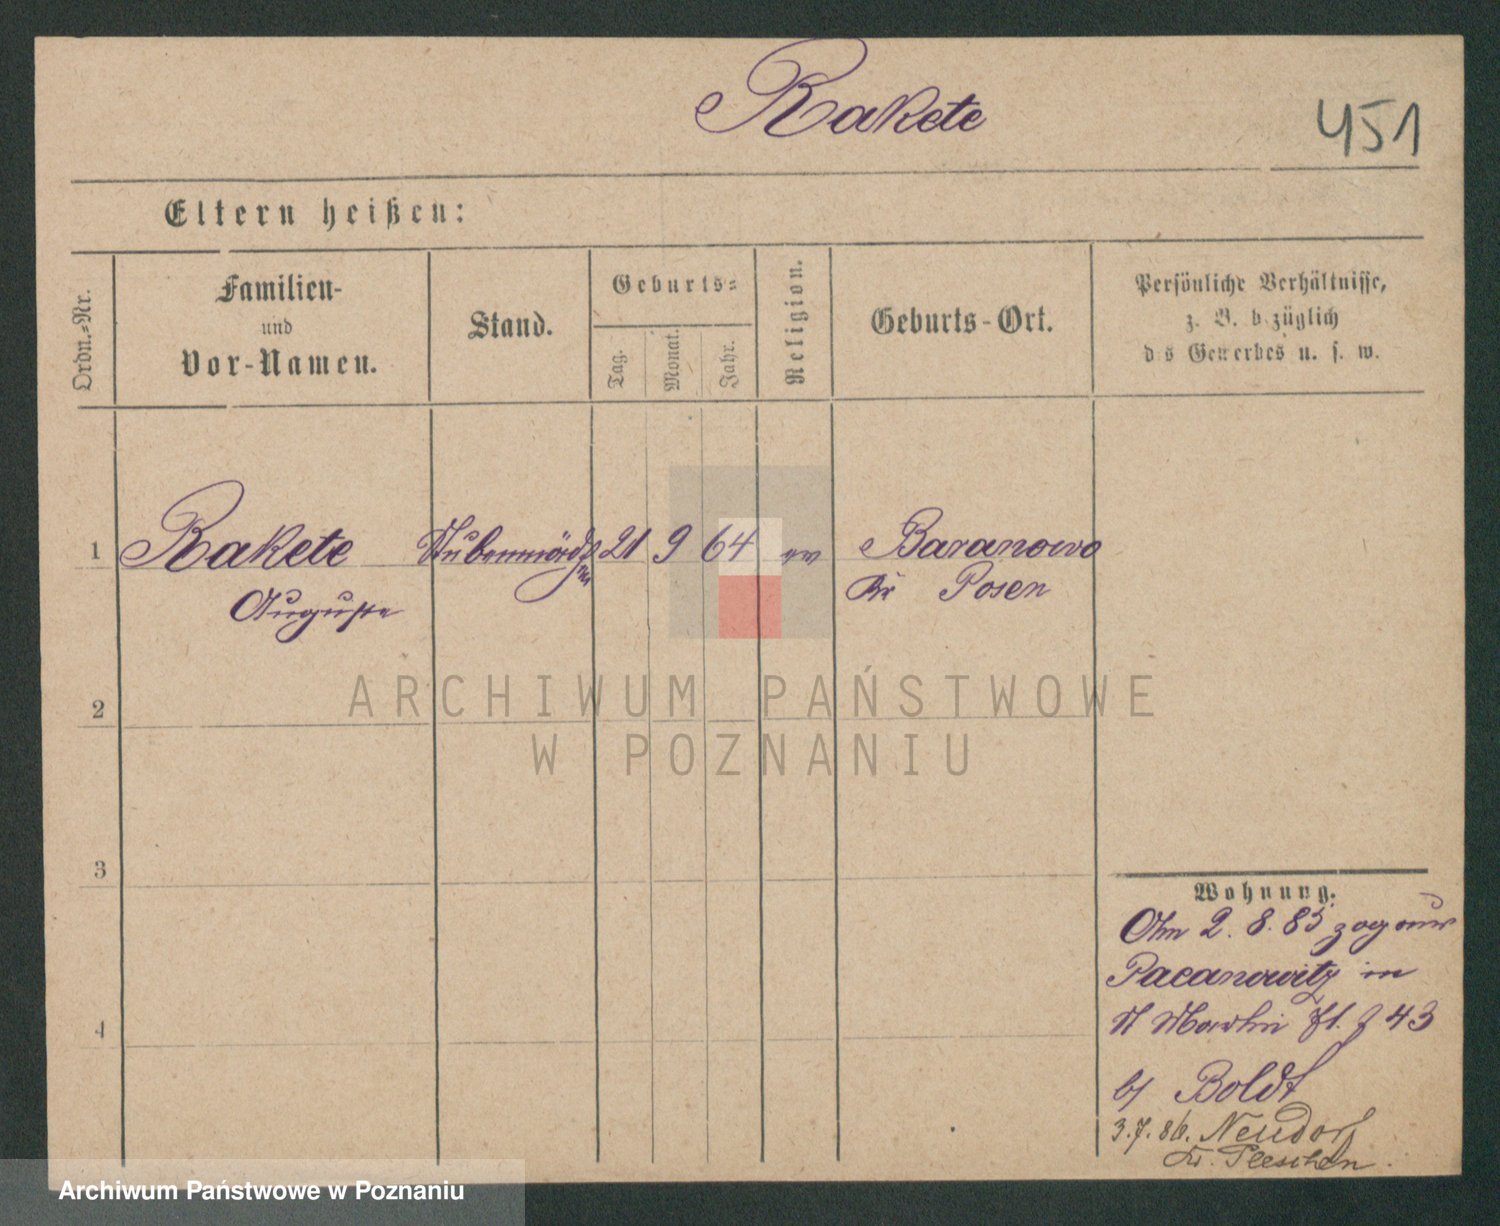 Rakete
451
Eltern heißen:
Ordn.=Nr.
Familien-
und
Vor-Namen.
Stand.
Geburts=
Tag.
Monat.
Jahr.
Religion.
Geburts-Ort.
Persönliche Verhältnisse,
z. B. bezüglich
des Gewerbes u. s. w.
1 Rakete Stubenmädch 21 9 64 ev Baranowo
Auguste Kr Posen
2
3
4
Wohnung.
Am 2. 8. 85 zog aus
Pacanowitz in
St Martin 43
b/ Boldt
3.7.86. Neudorf
Kr. Pleschen.
ARCHIWUM PAŃSTWOWE
W POZNANIU
Archiwum Państwowe w Poznaniu